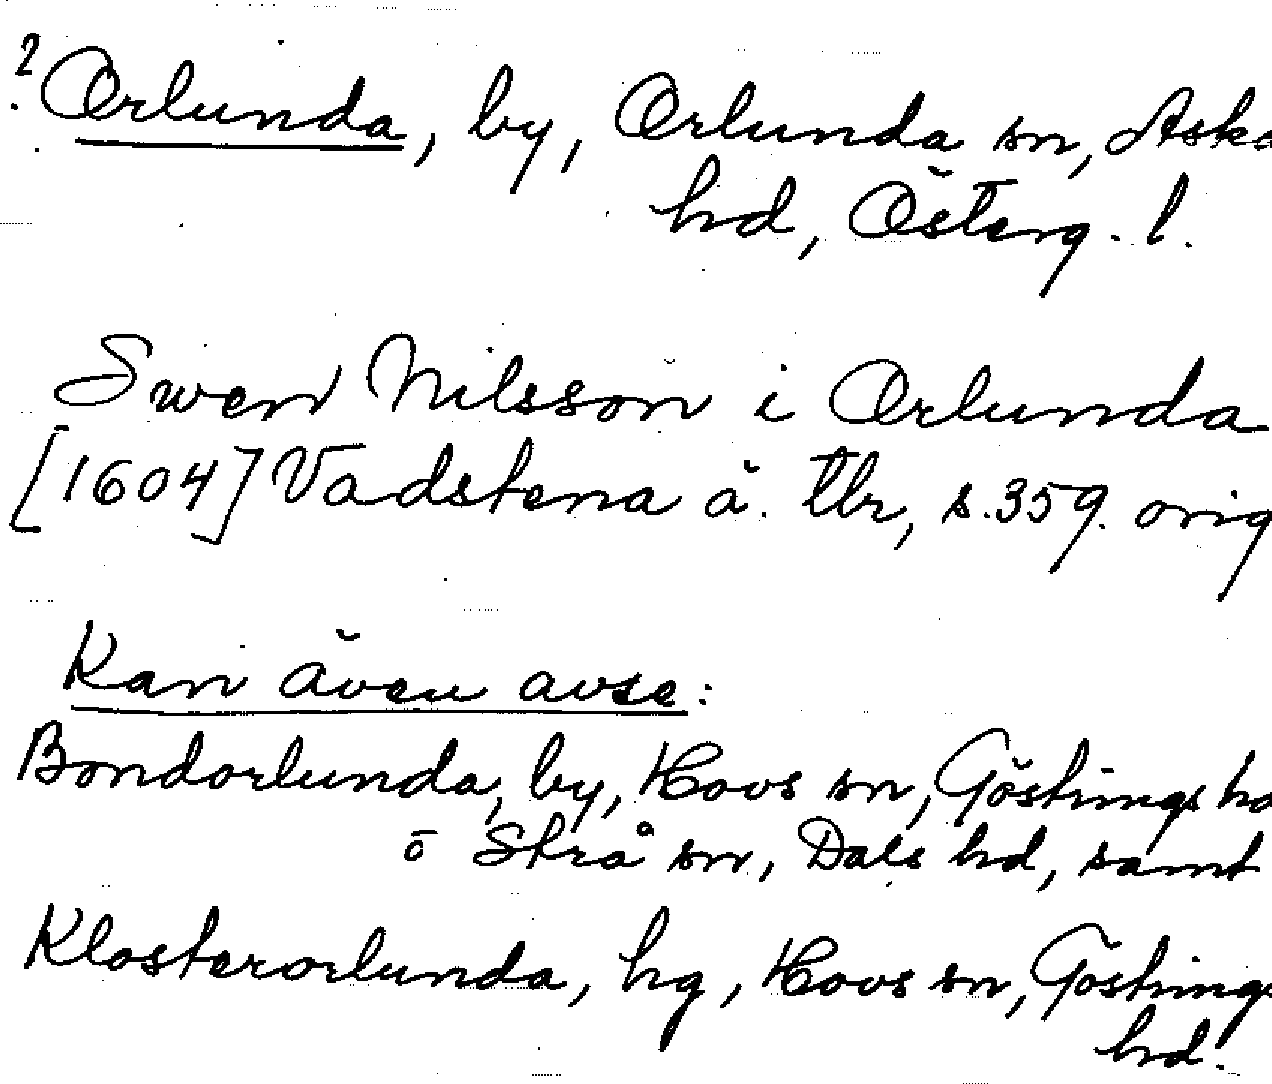 ? Orlunda, by, Orlunda sn, Aska
hd, Österg. l.
Swen Nilsson i Orlunda
[1604] Vadstena ä. tbr, s. 359. orig
Kan även avse:
Bondorlunda, by, Hovs sn, Göstrings hd
o Strå sn, Dals hd, samt
Klosterorlunda, hg, Hovs sn, Göstrings
hd.